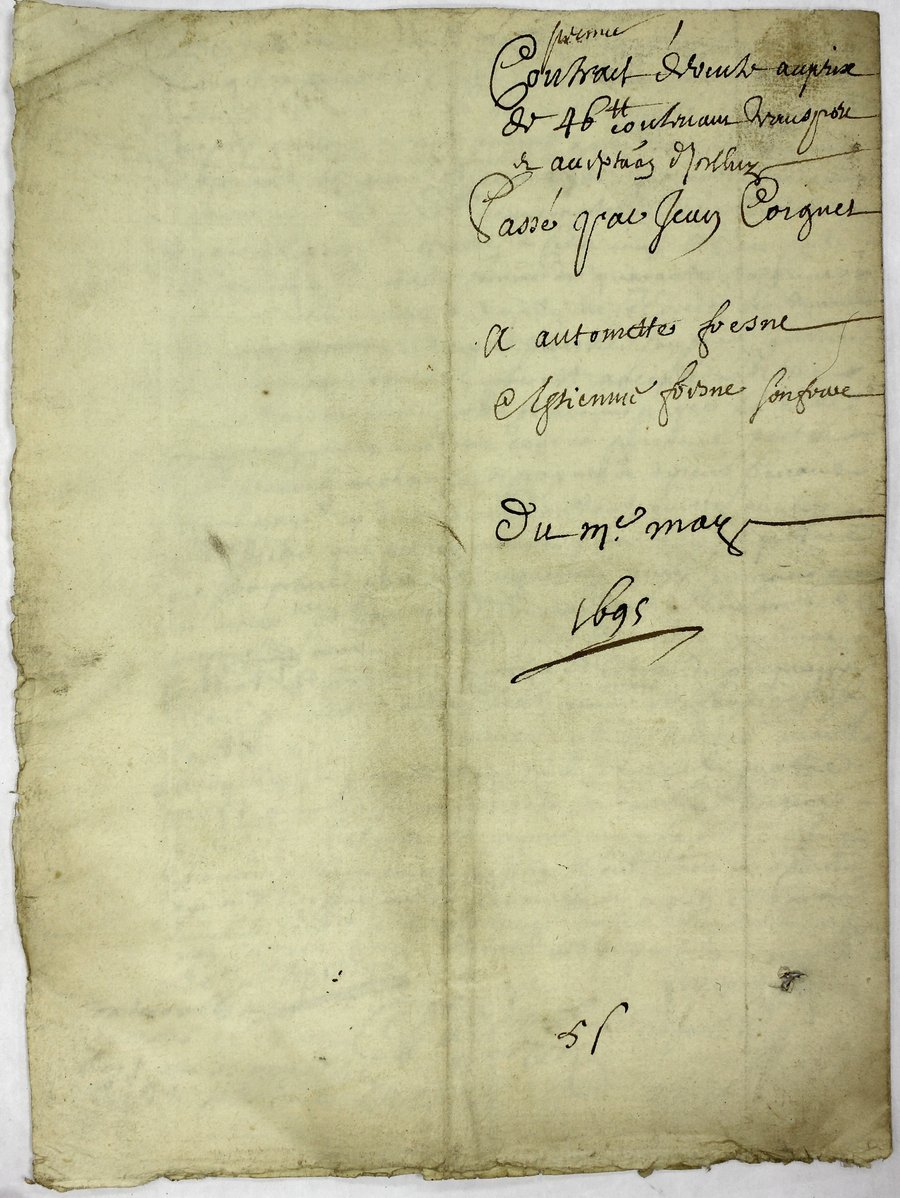 premie
Contract de vente au prix
de 46 tt contenant transport
et acceptaõn d'Icelluy
Passé par Jean Coignet
A antoinette fresne
Estienne fresne son frere
Du me. may
1695